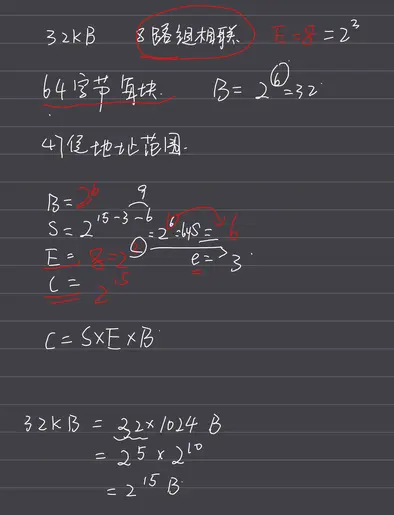 32KB 8路组相联 E=8=2³
64字节每块. B=2⁶=32
47位地址范围.
9
B=2⁶
S=2¹⁵⁻³⁻⁶=2⁶=64 S=6
E= 8=2³ e=>3
C= 2¹⁵
C=S×E×B
32KB = 32×1024 B
= 2⁵×2¹⁰
= 2¹⁵ B